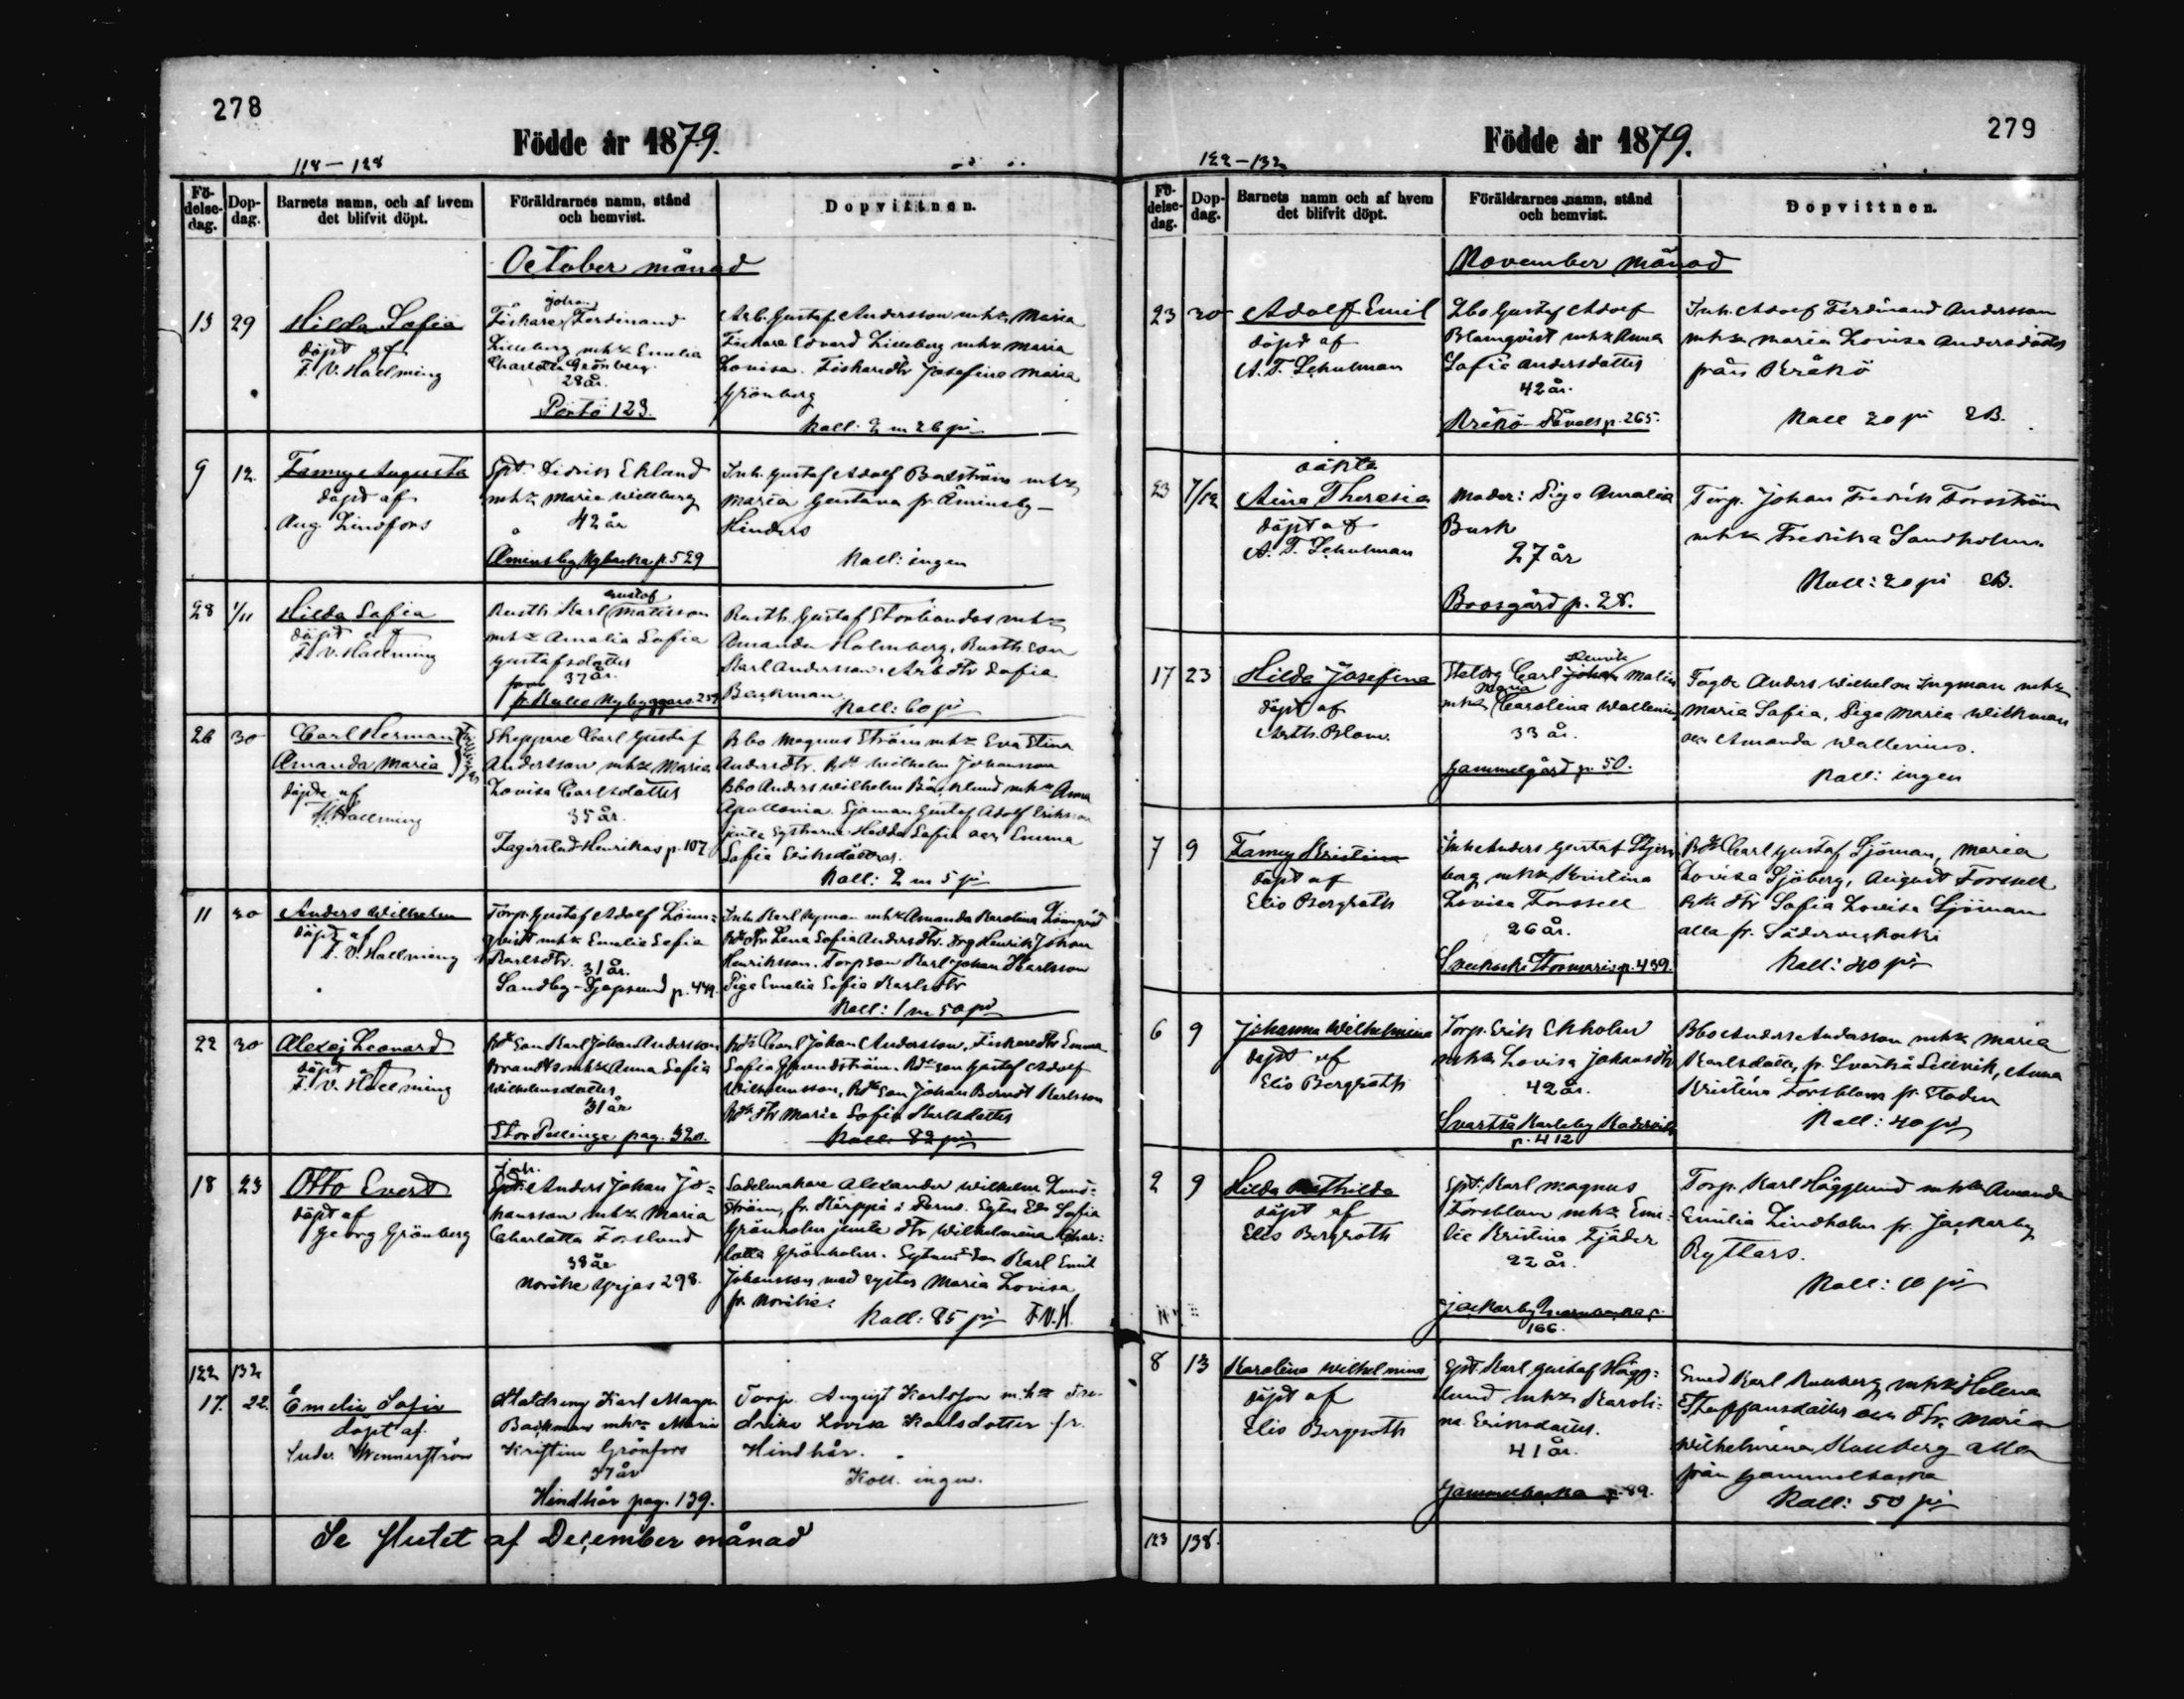 278
Födde år 1879.
118-128
Fö-
delse-
dag.
Dop-
dag.
Barnets namn, och af hvem
det blifvit döpt.
Föräldrarnes namn, stånd
och hemvist.
Dopvittnen.
October månad
13 29
Hilda Sofia
döpt af
F. V. Hallming
Johan
Fiskare Ferdinand
Lilleberg mhz Emelia
Charlotta Grönberg
28 år.
Pörtö 123.
Arb. Gustaf Andersson mhz Maria
Fiskare Edvard Lilleberg mhz Maria
Lovisa. Fiskaredtr Josefina Maria
Grönberg
Koll: 2 m 26 pi
9 12
Fanny Augusta
döpt af
Aug Lindfors
Spt. Didrik Eklund
mhz Maria Willberg
42 år
Åminsby Nybacka p. 529
Inh. Gustaf Adolf Backström mhz
Maria Gustava fr Åminsby-
Hinders
Koll: ingen
28 1/11
Hilda Sofia
döpt af
F. V. Hallming
Gustaf
Rusth. Karl Matsson
mhz Amalia Sofia
Gustafsdotter
37 år.
Nybyggars 259
Rusth. Gustaf mhz
Amanda Holmberg, Rusth. son
Karl Andersson. Arb dtr Sofia
Backman
Koll: 60 pi
26 30
Carl Herman
Amanda Maria
döpta af
Hallming
Skeppare Carl Gustaf
Andersson mhz Maria
Lovisa Carlsdotter
35 år.
Fagerstad-Henrikas p. 107
Bbo Magnus Ström mhz Eva Stina
Andersdtr. Wilhelm Johansson
Bbo Anders Wilhelm Bäcklund mhz Anna
Apollonia. Sjöman Gustaf Adolf Eriksson
Hedda Sofia och Emma
Sofia Eriksdöttrar.
Koll: 2 m 5 pi
11 30
Anders Wilhelm
döpt af
F. V. Hallming
Torp. Gustaf Adolf Lönn=
qvist mhz Emelie Sofia
Karlsdtr.
31 år.
Sandby- p. 449.
Inh. Karl Nyman mhz Amanda Karolina Lönnqvist
Lena Sofia Andersdtr. Drg Henrik Johan
Henriksson. Torp son Karl Johan Karlsson
Piga Emelia Sofia Karlsdtr
Koll: 1 m 50 pi
22 30
Alexej Leonard
döpt af
F. V. Hallming
Son Karl Johan Andersson
Brandts mhz Anna Sofia
Wilhelmsdotter
31 år
Stor Pellinge pag. 320.
Carl Johan Andersson, Fiskaredtr Emma
Sofia Grundström. son Gustaf Adolf
Wilhelmsson, son Johan Berndt Karlsson
dtr Maria Sofia Karlsdotter
Koll: 82 pi
18 23
Otto Evert
döpt af
Georg Grönberg
Inh.
Anders Johan Jo=
hansson mhz Maria
Charlotta Forslund
38 år
Norike 298.
Sadelmakare Alexander Wilhelm Lund=
ström, fr. Körppi i Perno. Sofia
Grönholm jemte dtr Wilhelmina Char=
lotta Grönholm. Karl Emil
Johansson med syster Maria Lovisa
fr. Norike.
Koll: 85 pi F.V.H.
122 132
17. 22.
Emelia Sofia
döpt af
Wennerström
Statdreng Karl Magn.
Backman mhz Maria
Kristina Grönfors
37 år
Hindhår pag. 139.
Torp. August Karlsson mhz Fre-
drika Lovisa Karlsdotter fr.
Hindhår.
Koll. ingen.
Se slutet af December månad
279
Födde år 1879.
122-132
Fö-
delse-
dag.
Dop-
dag.
Barnets namn och af hvem
det blifvit döpt.
Föräldrarnes namn, stånd
och hemvist.
Dopvittnen.
November månad
23 30
Adolf Emil
döpt af
A. F. Schulman
Lbo Gustaf Adolf
Blomqvist mhz Anna
Sofia Andersdotter
42 år.
Kråkö p. 265.
Inh. Adolf Ferdinand Andersson
mhz Maria Lovisa Andersdotter
från Kråkö
Koll 20 pi
23 7/12
oäkta
Aina Theresia
döpt af
A. F. Schulman
Moder: Piga Amalia
Busk
27 år
Boesgård p. 28.
Torp. Johan Fredrik Forsström
mhz Fredrika Sandholm.
Koll: 20 pi
17 23
Hilda Josefina
döpt af
Arth. Blom.
Henrik
Statdrg Carl Johan Malin
Maria
mhz Carolina Wallenius
33 år.
Gammelgård p. 50.
Fogde Anders Wilhelm Ingman mhz
Maria Sofia, Piga Maria Wilkman
och Amanda Wallenius.
Koll: ingen
7 9
Fanny Kristina
döpt af
Elis Bergroth
Inh Anders Gustaf Stjern
berg mhz Kristina
Lovisa Forssell
26 år.
p. 439.
Carl Gustaf Sjöman, Maria
Lovisa Sjöberg, August Forssell
dtr Sofia Lovisa Sjöman
alla fr. Söderveckoski
Koll: 40 pi
6 9
Johanna Wilhelmina
döpt af
Elis Bergroth
Torp. Erik Ekholm
mhz Lovisa Johansdtr
42 år.
Svartså Karleby
p. 412
Bbo Anders Andersson mhz Maria
Karlsdotter, fr. Svartså Lillvik, Anna
Kristina Forsblom fr. Staden
Koll: 40 pi
2 9
Hilda Mathilda
döpt af
Elis Bergroth
Spt. Karl Magnus
Forsblom mhz Emi=
lie Kristina Fjäder
22 år.
Jackarby
166.
Torp. Karl Hägglund mhz Amanda
Emilia Lindholm fr. Jackarby
Ryttars.
Koll: 10 pi
8 13
Karolina Wilhelmina
döpt af
Elis Bergroth
Spt. Karl Gustaf Hägg=
lund mhz Karoli=
na Eriksdotter.
41 år.
Gammelbacka p. 89.
Smed Karl mhz Helena
Staffansdotter och dtr Maria
Wilhelmina alla
från Gammelbacka
Koll: 50 pi
123 138